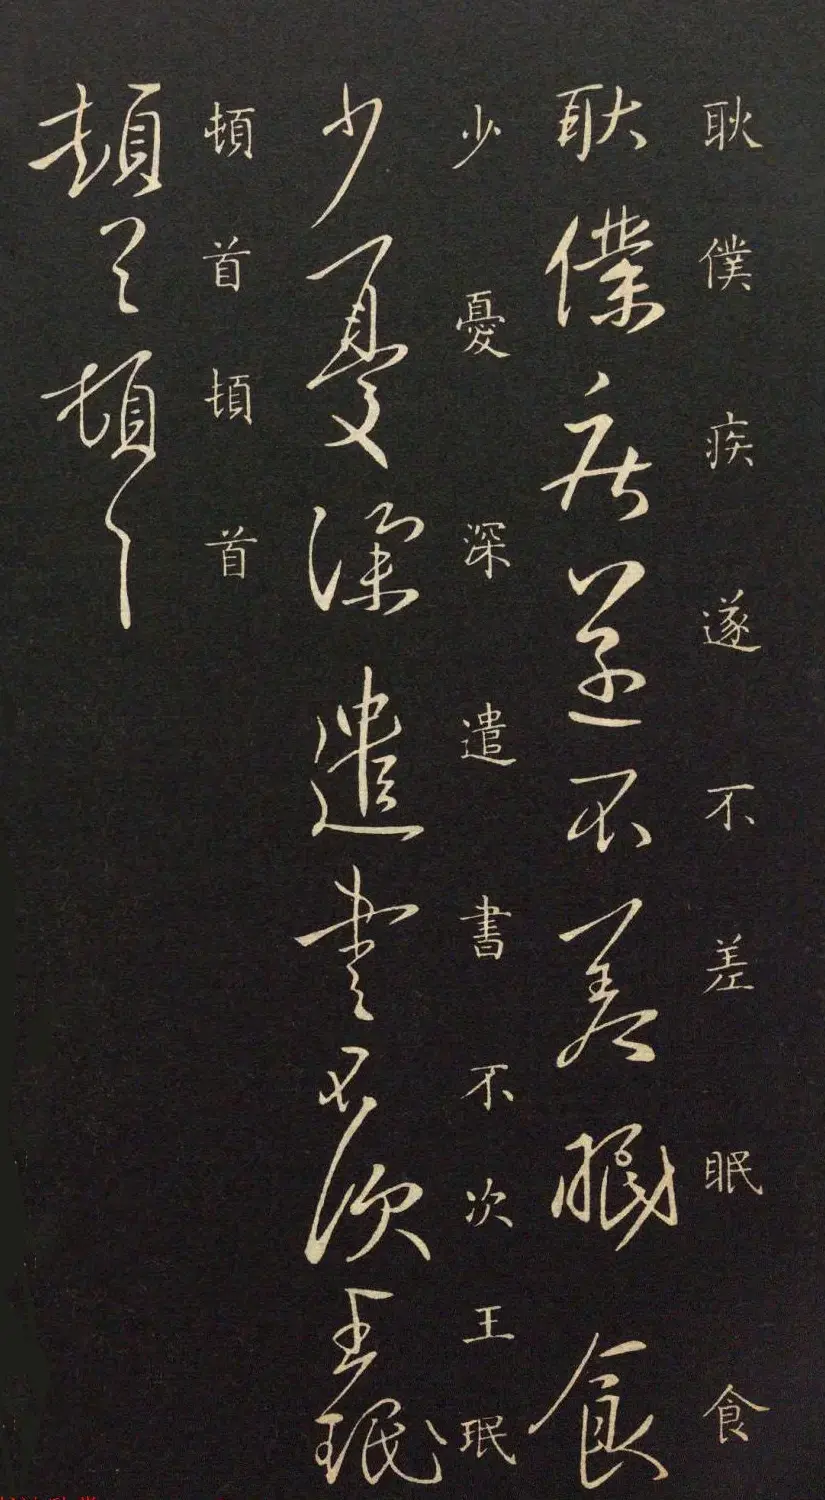 耿僕疾遂不差眠食
耿僕疾遂不差眠食
少憂深遣書不次王珉
少憂深遣書不次王珉
頓首頓首
頓首頓首